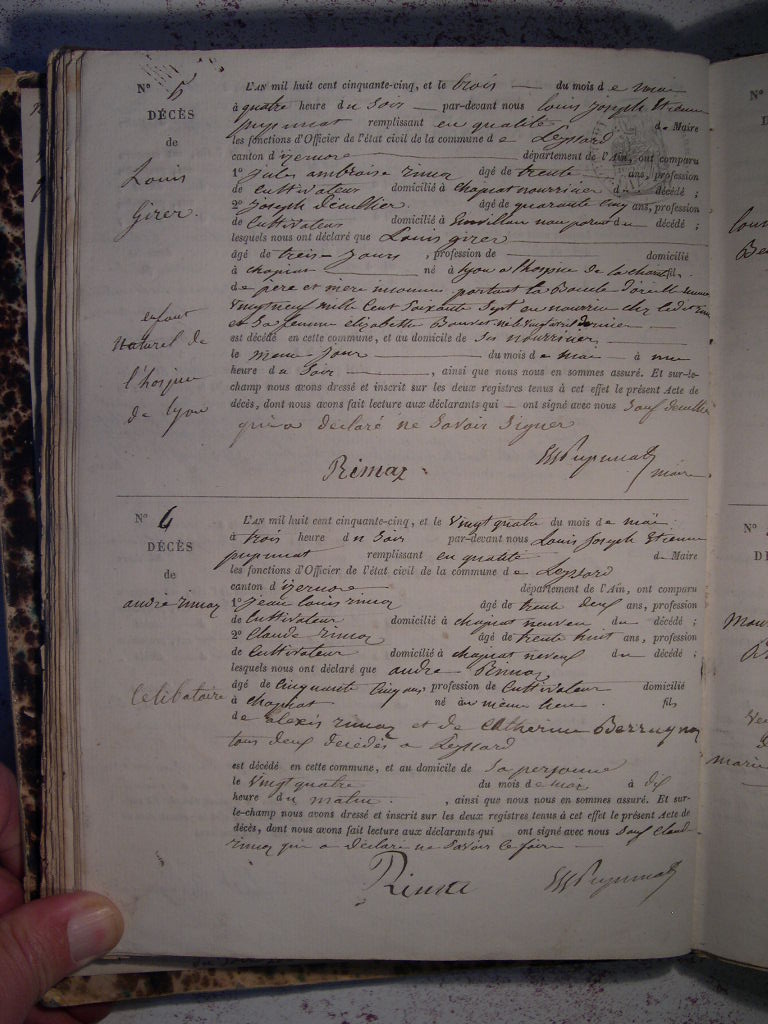 N° 5
DÉCÈS
de
Louis
Girer.
enfant
Naturel de
l'hospice
de Lyon
L'AN mil huit cent cinquante-cinq, et le trois du mois de mai
à quatre heure du Soir par-devant nous Louis Joseph Etienne
remplissant en qualité de Maire
les fonctions d'Officier de l'état civil de la commune de Leyssard
canton d'izernore département de l'Ain, ont comparu
1° Jules ambroise rimoz âgé de trente ans, profession
de Cultivateur domicilié à chapiat nourricier du décédé ;
2° Joseph âgé de quarante cinq ans, profession
de Cultivateur domicilié à non parent du décédé ;
lesquels nous ont déclaré que Louis girer
âgé de treize Jours, profession de domicilié
à chapiat né à Lyon a l'hospice de la charité fil
de père et mère inconnus portant la Boucle d'oreille
Vingt neuf mille Cent Soixante Sept en nourrice chez
et Sa femme élizabeth né le Vingt avril dernier
est décédé en cette commune, et au domicile de Ses nourriciers
le meme Jour du mois de mai à une
heure du Soir, ainsi que nous nous en sommes assuré. Et sur-le-
champ nous avons dressé et inscrit sur les deux registres tenus à cet effet le présent Acte de
décès, dont nous avons fait lecture aux déclarants qui ont signé avec nous Sauf
qui a déclaré ne Savoir Signer
Rimoz
maire
N° 6
DÉCÈS
de
andré rimoz
Celibataire
L'AN mil huit cent cinquante-cinq, et le Vingt quatre du mois de mai
à trois heure du Soir par-devant nous Louis Joseph Etienne
remplissant en qualité de Maire
les fonctions d'Officier de l'état civil de la commune de Leyssard
canton d'izernore département de l'Ain, ont comparu
1° Jean Louis rimoz âgé de trente deux ans, profession
de Cultivateur domicilié à chapiat neveu du décédé ;
2° Claude rimoz âgé de trente huit ans, profession
de Cultivateur domicilié à chapiat neveu du décédé ;
lesquels nous ont déclaré que andré Rimoz
âgé de Cinquante Cinq ans, profession de Cultivateur domicilié
à chapiat né au même lieu fils
de alexis rimoz et de Catherine
tous deux décédés a Leyssard
est décédé en cette commune, et au domicile de Sa personne
le Vingt quatre du mois de mai à dix
heure du matin, ainsi que nous nous en sommes assuré. Et sur-
le-champ nous avons dressé et inscrit sur les deux registres tenus à cet effet le présent Acte de
décès, dont nous avons fait lecture aux déclarants qui ont signé avec nous Sauf Claude
rimoz qui a déclaré ne Savoir le faire
Rimoz